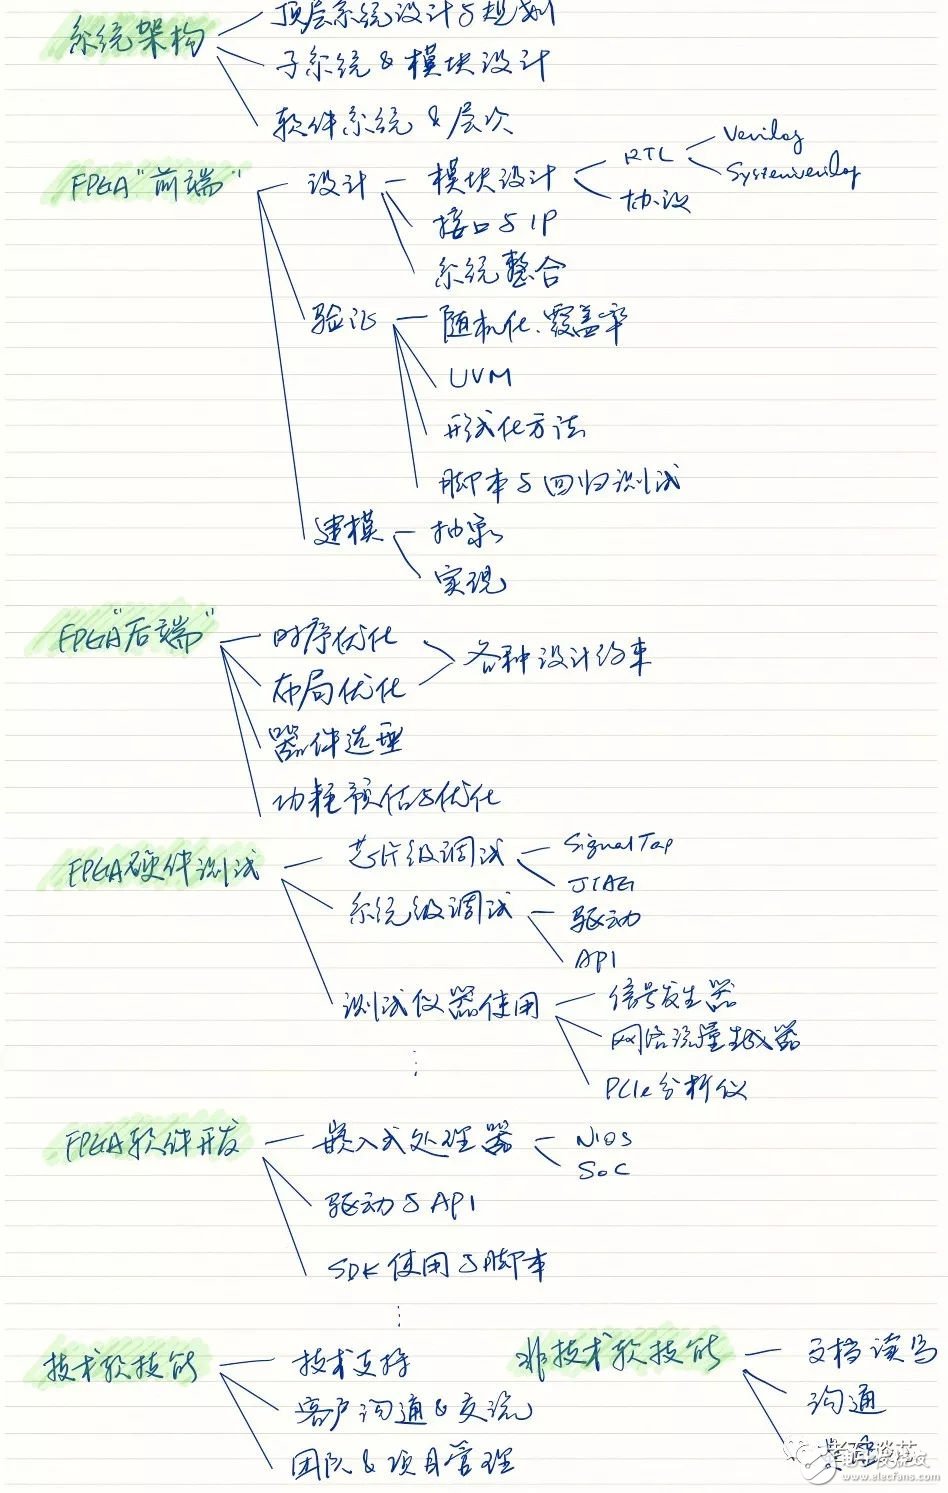 顶层系统设计与规划
系统架构
子系统 & 模块设计
软件系统 & 层次
Verilog
RTL
FPGA "前端"
设计
模块设计
Systemverilog
协议
接口与IP
系统整合
验证
随机化、覆盖率
UVM
形式化方法
脚本与回归测试
建模
抽象
实现
FPGA "后端"
时序优化
各种设计约束
布局优化
器件选型
功耗预估与优化
芯片级调试
SignalTap
FPGA硬件测试
JTAG
系统级调试
驱动
API
测试仪器使用
信号发生器
网络流量生成器
PCIe分析仪
FPGA软件开发
嵌入式处理器
NIOS
SoC
驱动与API
SDK使用与脚本
技术软技能
技术支持
客户沟通 & 交流
团队 & 项目管理
非技术软技能
文档读写
沟通
老石谈芯
电子发烧友
www.elecfans.com